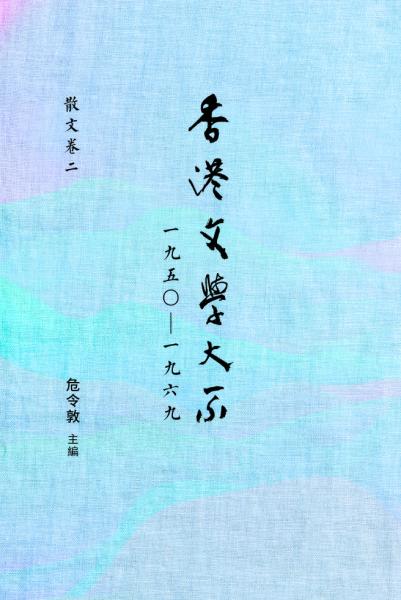 香港文學大系
一九五〇——一九六九
散文卷二
危令敦 主編